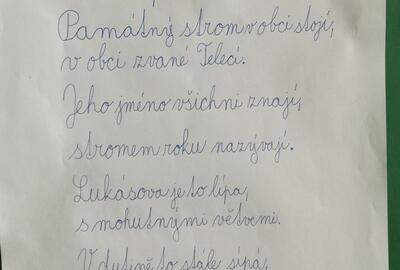 Památný strom v obci stojí,
v obci zvané Telecí.
Jeho jméno všichni znají,
stromem roku nazývají.
Lukásova je to lípa,
s mohutnými větvemi.
V dutině to stále sípá,